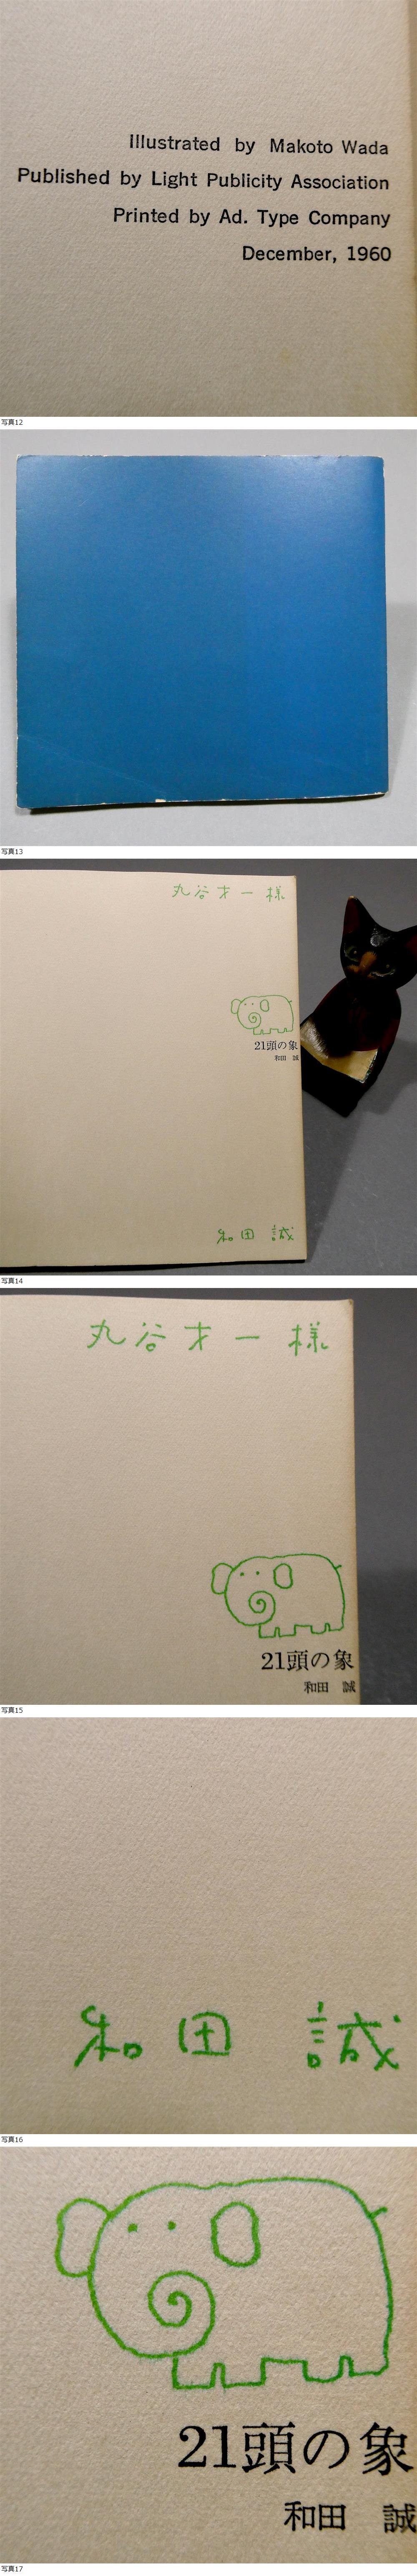 Illustrated by Makoto Wada
Published by Light Publicity Association
Printed by Ad. Type Company
December, 1960
写真12
写真13
丸谷才一様
21頭の象
和田 誠
和田 誠
写真14
丸谷才一様
21頭の象
和田 誠
写真15
和田 誠
写真16
21頭の象
和田 誠
写真17